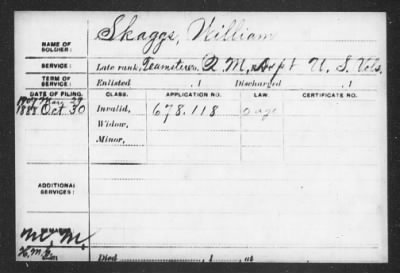 NAME OF SOLDIER: Skaggs, William
SERVICE: Late rank, Teamster Q. M. Dept U. S. Vols.
TERM OF SERVICE: Enlisted , 1 Discharged , 1
DATE OF FILING. CLASS. APPLICATION NO. LAW. CERTIFICATE NO.
1888 Oct 30 Invalid, 678.118
Widow,
Minor,
ADDITIONAL SERVICES:
REMARKS:
Died , 1 , at